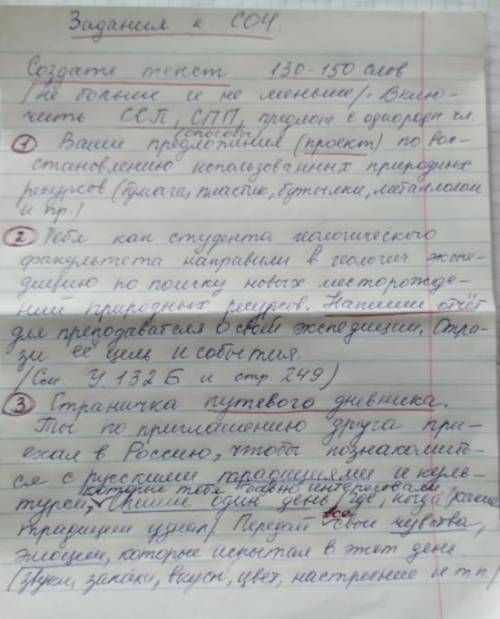 Задания к СОЧ.
Создать текст 130-150 слов
(не больше и не меньше). Вклю-
чить ССП, СПП, предлож с однородн чл.
(способы)
1 Ваши предложения (проект) по вос-
становлению использованных природных
ресурсов (бумага, пластик, бутылки, металлолом
и пр.)
2 Тебя как студента геологического
факультета направили в геологич. экспе-
дицию по поиску новых месторожде-
ний природных ресурсов. Напиши отчёт
для преподавателя о своей экспедиции. Отра-
зи её цель и события.
(См. У. 132 Б и стр. 249)
3 Страничка путевого дневника.
Ты по приглашению друга при-
ехал в Россию, чтобы познакомить-
ся с русскими традициями и куль-
турой, которые тебя давно интересовали.
Опиши один день (где, когда, какие
традиции узнал) Передай все свои чувства,
эмоции, которые испытал в этот день
(звуки, запахи, вкусы, цвет, настроение и т.п.)